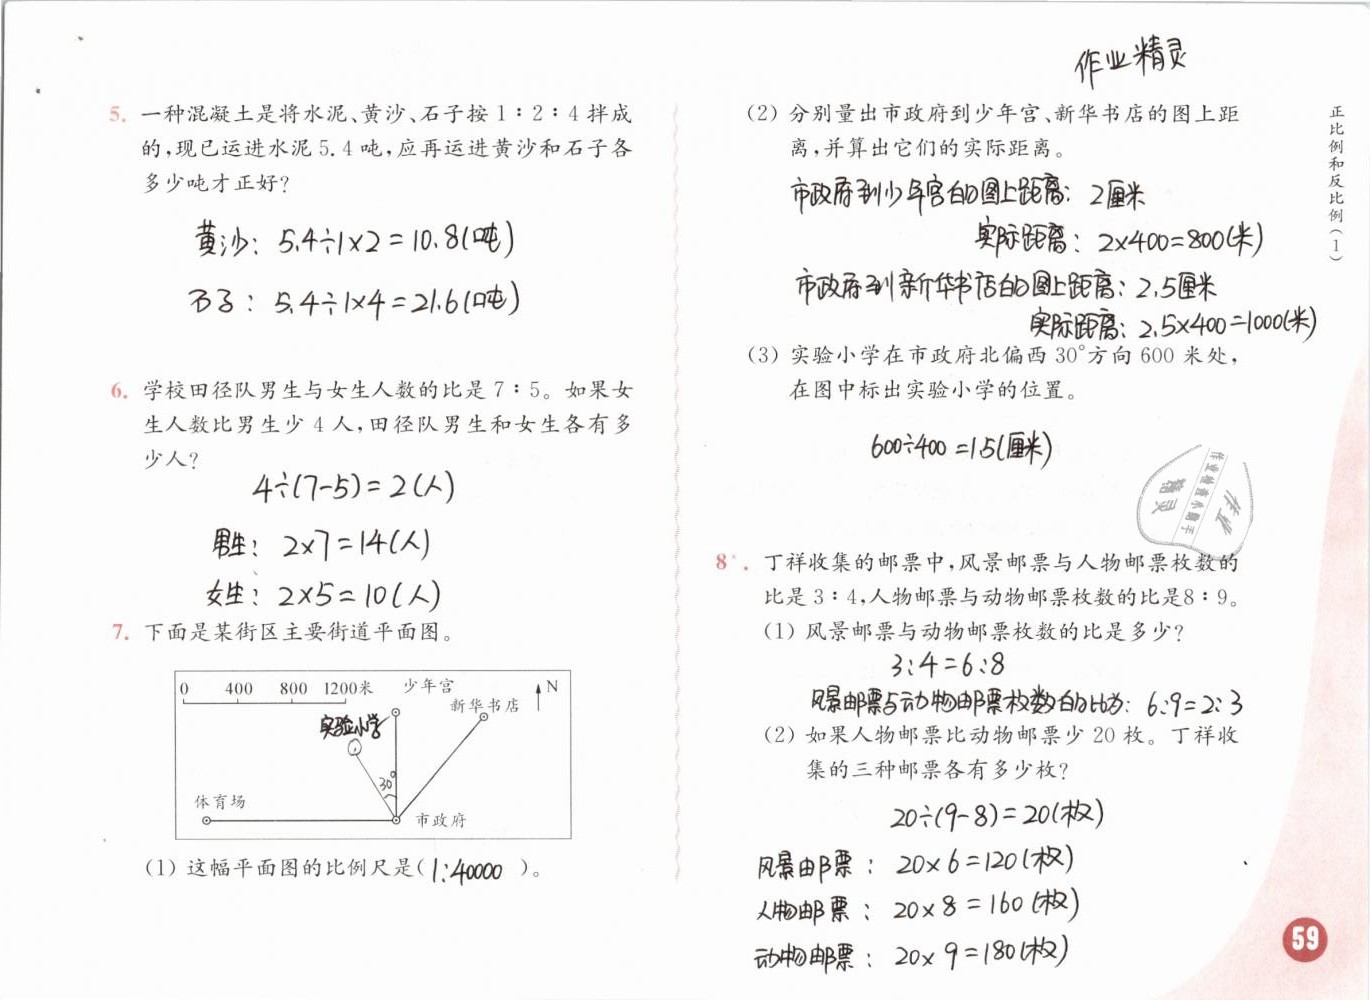 作业精灵
5. 一种混凝土是将水泥、黄沙、石子按1∶2∶4拌成
的,现已运进水泥5.4吨,应再运进黄沙和石子各
多少吨才正好?
黄沙: 5.4÷1×2=10.8(吨)
石子: 5.4÷1×4=21.6(吨)
6. 学校田径队男生与女生人数的比是7∶5。如果女
生人数比男生少4人,田径队男生和女生各有多
少人?
4÷(7-5)=2(人)
男生: 2×7=14(人)
女生: 2×5=10(人)
7. 下面是某街区主要街道平面图。
0 400 800 1200米 少年宫 N
新华书店
实验小学
30°
体育场
市政府
(1) 这幅平面图的比例尺是(1:40000)。
(2) 分别量出市政府到少年宫、新华书店的图上距
离,并算出它们的实际距离。
市政府到少年宫的图上距离: 2厘米
实际距离: 2×400=800(米)
市政府到新华书店的图上距离: 2.5厘米
实际距离: 2.5×400=1000(米)
(3) 实验小学在市政府北偏西30°方向600米处,
在图中标出实验小学的位置。
600÷400=1.5(厘米)
作业
作业检查小助手
精灵
8*. 丁祥收集的邮票中,风景邮票与人物邮票枚数的
比是3∶4,人物邮票与动物邮票枚数的比是8∶9。
(1) 风景邮票与动物邮票枚数的比是多少?
3:4=6:8
风景邮票与动物邮票枚数的比为: 6:9=2:3
(2) 如果人物邮票比动物邮票少20枚。丁祥收
集的三种邮票各有多少枚?
20÷(9-8)=20(枚)
风景邮票: 20×6=120(枚)
人物邮票: 20×8=160(枚)
动物邮票: 20×9=180(枚)
正比例和反比例(1)
59